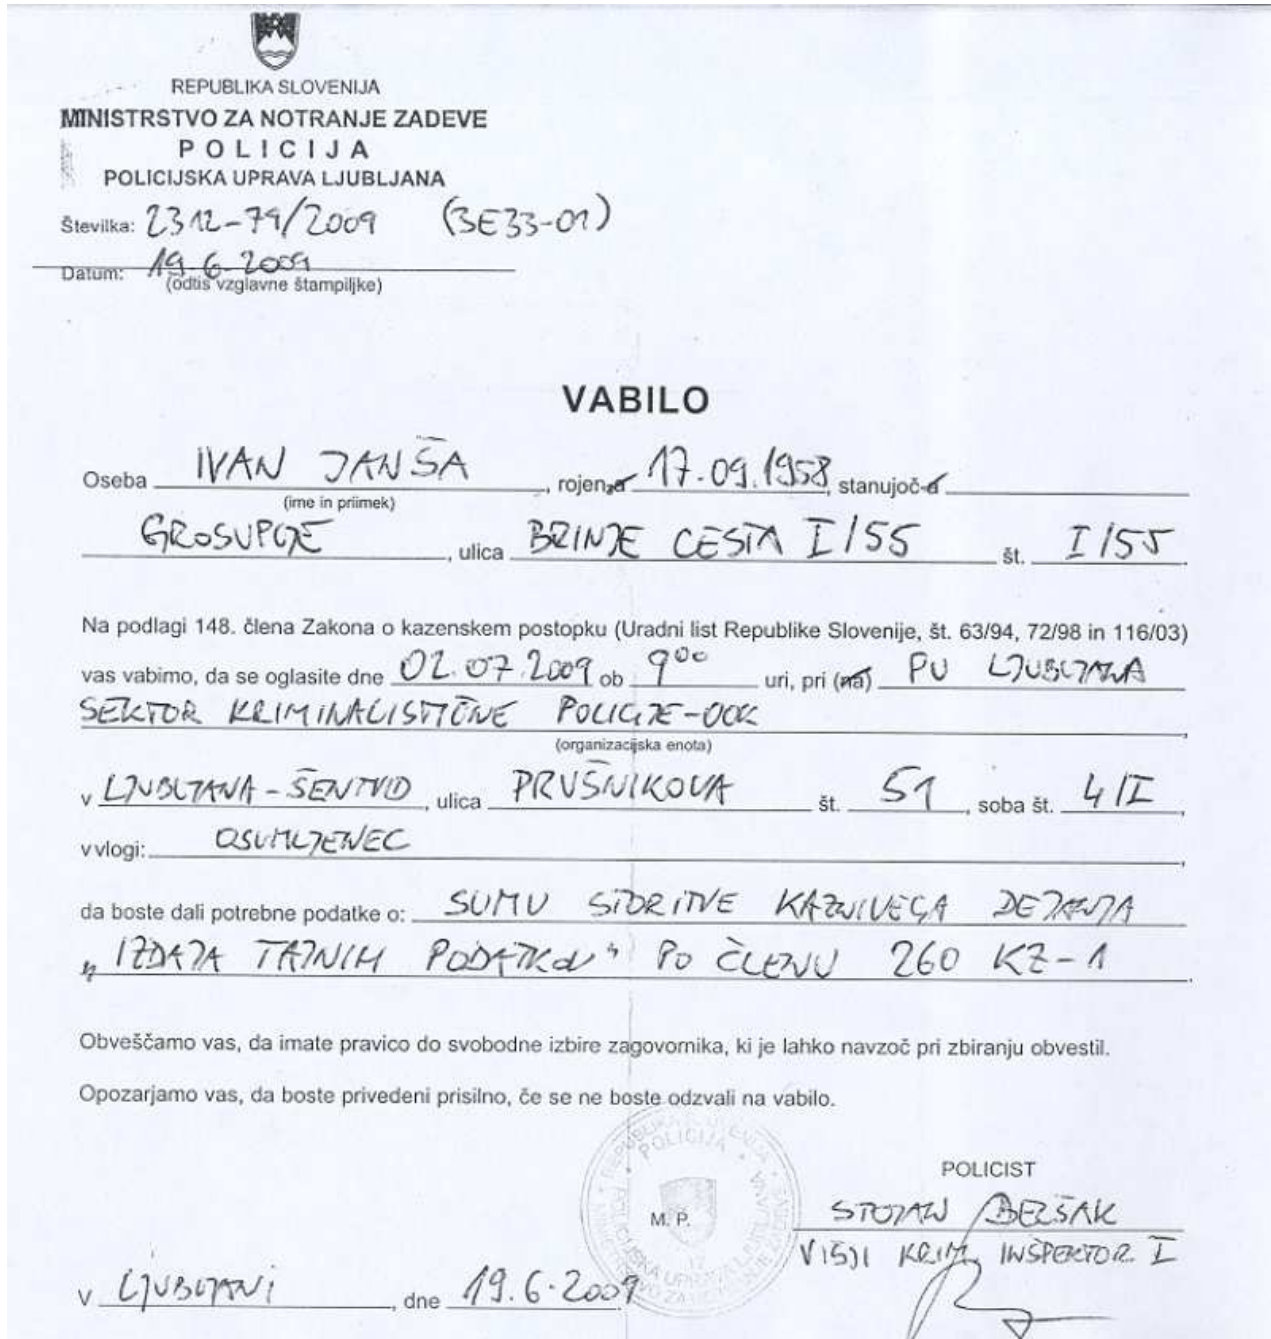 REPUBLIKA SLOVENIJA
MINISTRSTVO ZA NOTRANJE ZADEVE
POLICIJA
POLICIJSKA UPRAVA LJUBLJANA
Številka: 2312-79/2009 (3E33-01)
Datum: 19.6.2009
(odtis vzglavne štampiljke)
VABILO
Oseba IVAN JANŠA, rojen,a 17.09.1958, stanujoč-a
(ime in priimek)
GROSUPLJE, ulica BRINJE CESTA I/55 št. I/55.
Na podlagi 148. člena Zakona o kazenskem postopku (Uradni list Republike Slovenije, št. 63/94, 72/98 in 116/03)
vas vabimo, da se oglasite dne 02.07.2009 ob 9⁰⁰ uri, pri (na) PU LJUBLJANA
SEKTOR KRIMINALISTIČNE POLICIJE-OOK,
(organizacijska enota)
v LJUBLJANA-ŠENTVID, ulica PRUŠNIKOVA št. 51, soba št. 4/I,
v vlogi: OSUMLJENEC,
da boste dali potrebne podatke o: SUMU STORITVE KAZNIVEGA DEJANJA
"IZDAJA TAJNIH PODATKOV" PO ČLENU 260 KZ-1.
Obveščamo vas, da imate pravico do svobodne izbire zagovornika, ki je lahko navzoč pri zbiranju obvestil.
Opozarjamo vas, da boste privedeni prisilno, če se ne boste odzvali na vabilo.
POLICIJA
POLICIST
M. P.
STOJAN BELŠAK
VIŠJI KRIM. INŠPEKTOR I
v LJUBLJANI, dne 19.6.2009